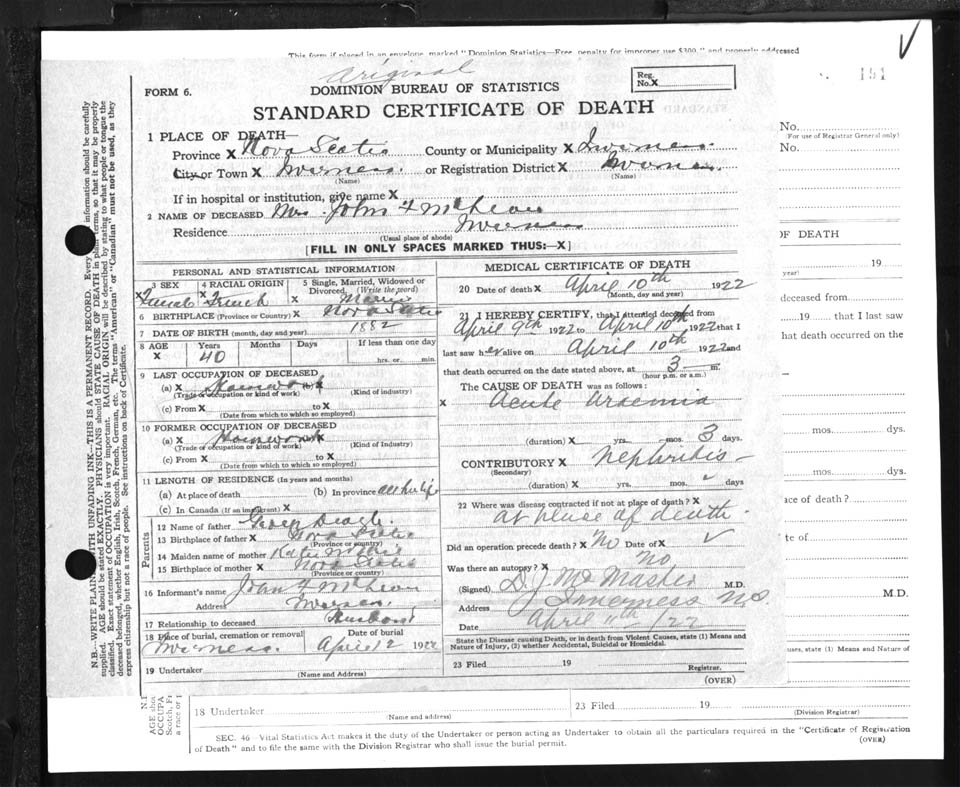 This form if placed in an envelope marked "Dominion Statistics—Free, penalty for improper use $300," and properly addressed
Original
151
FORM 6.
DOMINION BUREAU OF STATISTICS
Reg. No. X
STANDARD CERTIFICATE OF DEATH
1 PLACE OF DEATH—
Province X Nova Scotia County or Municipality X Inverness
City or Town X Inverness or Registration District X Inverness
(Name) (Name)
If in hospital or institution, give name X
2 NAME OF DECEASED Mrs. John F McLean
Residence Inverness
(Usual place of abode)
[FILL IN ONLY SPACES MARKED THUS:—X]
PERSONAL AND STATISTICAL INFORMATION
3 SEX 4 RACIAL ORIGIN 5 Single, Married, Widowed or Divorced. (Write the word)
X Female X French Married
6 BIRTHPLACE (Province or Country) X Nova Scotia
7 DATE OF BIRTH (month, day and year) 1882
8 AGE Years Months Days If less than one day
X 40 hrs. or min.
9 LAST OCCUPATION OF DECEASED
(a) X Housework X
(Trade or occupation or kind of work) (Kind of industry)
(c) From X to X
(Date from which to which so employed)
10 FORMER OCCUPATION OF DECEASED
(a) X Housework X
(Trade or occupation or kind of work) (Kind of Industry)
(c) From X to X
(Date from which to which so employed)
11 LENGTH OF RESIDENCE (In years and months)
(a) At place of death (b) In province all her life
(c) In Canada (If an immigrant) X
Parents
12 Name of father
13 Birthplace of father X Nova Scotia
(Province or country)
14 Maiden name of mother
15 Birthplace of mother X Nova Scotia
(Province or country)
16 Informant's name John F McLean
Address Inverness
17 Relationship to deceased Husband
18 Place of burial, cremation or removal Date of burial
Inverness. April 12 1922
19 Undertaker
(Name and Address)
MEDICAL CERTIFICATE OF DEATH
20 Date of death X April 10th 1922
(Month, day and year)
21 I HEREBY CERTIFY, that I attended deceased from
April 9th 1922 to April 10th 1922 that I
last saw her alive on April 10th 1922 and
that death occurred on the date stated above, at 3 m.
(hour p.m. or a.m.)
The CAUSE OF DEATH was as follows:
X Acute Uraemia
(duration) X yrs. mos. 3 days.
CONTRIBUTORY X Nephritis
(Secondary)
(duration) X yrs. mos. days
22 Where was disease contracted if not at place of death? X
at place of death.
Did an operation precede death? X No Date of X
Was there an autopsy? X No
(Signed) D. J. McMaster M.D.
Address Inverness N.S.
Date April 11th /22
State the Disease causing Death, or in death from Violent Causes, state (1) Means and Nature of Injury, (2) whether Accidental, Suicidal or Homicidal.
23 Filed 19
Registrar.
(OVER)
N.B.—WRITE PLAINLY WITH UNFADING INK—THIS IS A PERMANENT RECORD. Every information should be carefully
supplied. AGE should be stated EXACTLY. PHYSICIANS should STATE CAUSE OF DEATH in plain terms, so that it may be properly
classified. Exact statement of OCCUPATION is very important. RACIAL ORIGIN will be described by stating to what people or tongue the
deceased belonged, whether English, Irish, Scotch, French, German, etc. The terms "American" or "Canadian" must not be used, as they
express citizenship but not a race of people. See instructions on back of Certificate.
No.
(For use of Registrar General only)
No.
OF DEATH
19
year)
deceased from
19 that I last saw
hat death occurred on the
mos. dys.
mos. dys.
ace of death?
te of
M.D.
uses, state (1) Means and Nature of
N.I
AGE shou
OCCUPA
Scotch, Fr
a race or
18 Undertaker
(Name and address)
23 Filed 19
(Division Registrar)
SEC. 46—Vital Statistics Act makes it the duty of the Undertaker or person acting as Undertaker to obtain all the particulars required in the "Certificate of Registration
of Death" and to file the same with the Division Registrar who shall issue the burial permit.
(OVER)